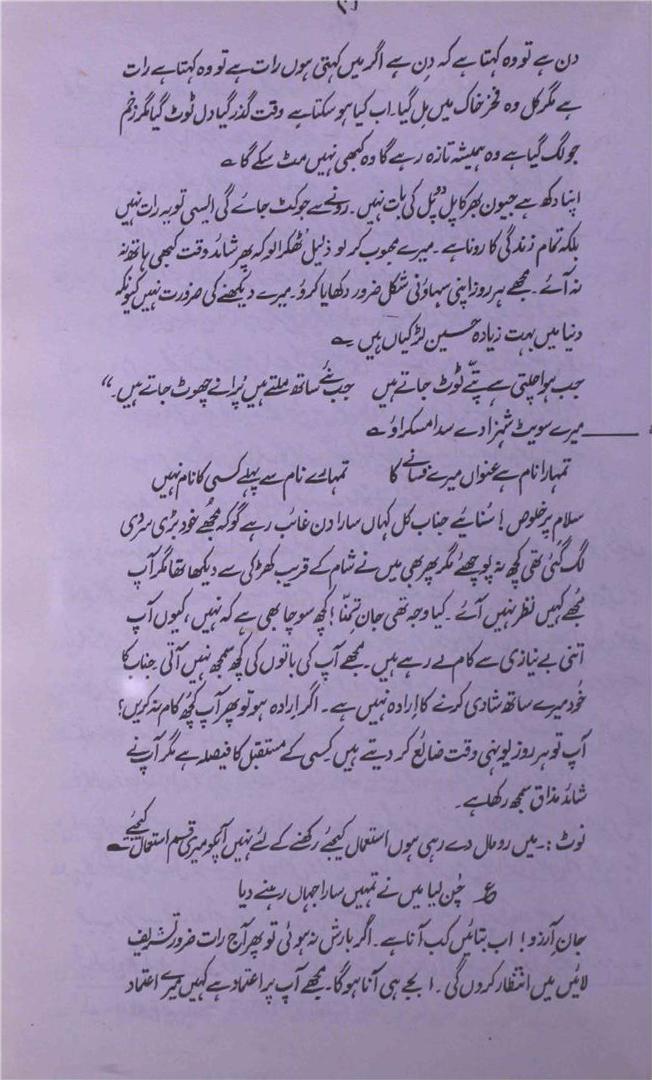 دن ہے تو وہ کہتا ہے کہ دن ہے اگر میں کہتی ہوں رات ہے تو وہ کہتا ہے رات
ہے مگر کل وہ فخر خاک میں مل گیا۔ اب کیا ہو سکتا ہے وقت گذر گیا دل ٹوٹ گیا مگر زخم
جو لگ گیا ہے وہ ہمیشہ تازہ رہے گا وہ کبھی نہیں مٹ سکے گا ؎
اپنا دکھ ہے جیون بھر کا پل دو پل کی بات نہیں۔ رونے سے جو کٹ جائے گی ایسی تو یہ رات نہیں
بلکہ تمام زندگی کا رونا ہے۔ میرے محبوب کر لو ذلیل ٹھکرا لو کہ پھر شائد وقت کبھی ہاتھ نہ
نہ آئے۔ مجھے ہر روز اپنی سہاؤنی شکل ضرور دکھایا کرو۔ میرے دیکھنے کی ضرورت نہیں کیونکہ
دنیا میں بہت زیادہ حسین لڑکیاں ہیں ؎
جب ہوا چلتی ہے پتے ٹوٹ جاتے ہیں جب نئے ساتھ ملتے ہیں پُرانے چھوٹ جاتے ہیں۔“
میرے سویٹ شہزادے سدا مسکراؤ ؎
تمہارا نام ہے عنواں میرے فسانے کا تمہارے نام سے پہلے کسی کا نام نہیں
سلام پر خلوص! سُنایئے جناب کل کہاں سارا دن غائب رہے گو کہ مجھے خود بڑی سردی
لگ گئی تھی کچھ نہ پوچھئے مگر پھر بھی میں نے شام کے قریب کھڑکی سے دیکھا تھا مگر آپ
مجھے کہیں نظر نہیں آئے۔ کیا وجہ تھی جان تمنّا! کچھ سوچا بھی ہے کہ نہیں، کیوں آپ
اتنی بے نیازی سے کام لے رہے ہیں۔ مجھے آپ کی باتوں کی کچھ سمجھ نہیں آتی جناب کا
خُود میرے ساتھ شادی کرنے کا اِرادہ نہیں ہے۔ اگر اِرادہ ہو تو پھر آپ کچھ کام نہ کریں؟
آپ تو ہر روز یونہی وقت ضائع کر دیتے ہیں کسی کے مستقبل کا فیصلہ ہے مگر آپ نے
شائد مذاق سمجھ رکھا ہے۔
نوٹ:۔ میں رومال دے رہی ہوں استعمال کیجئے رکھنے کے لئے نہیں آپکو میری قسم استعمال کیجئے ؎
ع چُن لیا میں نے تمہیں سارا جہاں رہنے دیا
جانِ آرزو! اب بتائیں کب آنا ہے۔ اگر بارش نہ ہوئی تو پھر آج رات ضرور تشریف
لائیں میں انتظار کروں گی۔ ۱ بجے ہی آنا ہو گا۔ مجھے آپ پر اعتماد ہے کہیں میرے اعتماد